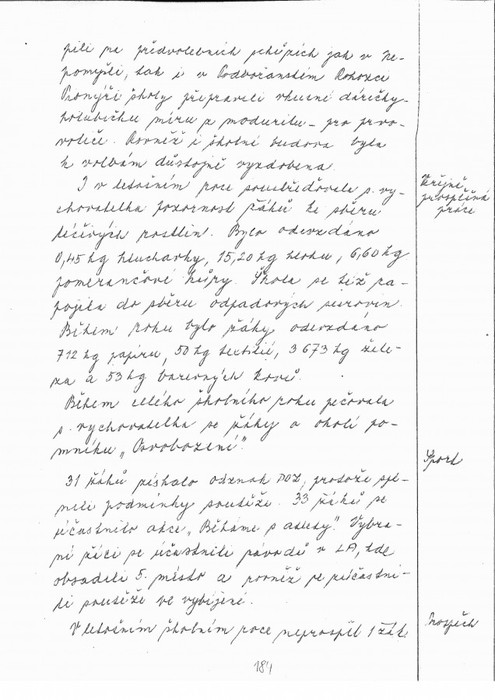 pili na předvolebních schůzích jak v Ne-
pomyšli, tak i v Podbořanském Rohozci
Pionýři školy připravili vkusné dárečky-
holubičku míru a moduritu - pro prvo-
voliče. Rovněž i školní budova byla
k volbám důstojně vyzdobena.
I v letošním roce soustřeďovala s. vy-
chovatelka pozornost žáků ke sběru
léčivých rostlin. Bylo odevzdáno
0,45 kg hluchavky, 15,20 kg hlohu, 6,60 kg
pomerančové kůry. Škola se též za-
pojila do sběru odpadových surovin.
Během roku bylo žáky odevzdáno
712 kg papíru, 50 kg textilií, 3 673 kg žele-
za a 53 kg barevných kovů.
Během celého školního roku pečovala
s. vychovatelka se žáky o okolí po-
mníku „Osvobození".
31 žáků získalo odznak POZ, protože spl-
nili podmínky soutěže. 33 žáků se
účastnilo akce „Běháme s atlety". Vybra-
ní žáci se účastnili závodů v LA, kde
obsadili 5. místo a rovněž se zúčastni-
li soutěže ve vybíjené.
V letošním školním roce neprospěl 1 žák
Veřejně
prospěšná
práce
Sport
Prospěch
184